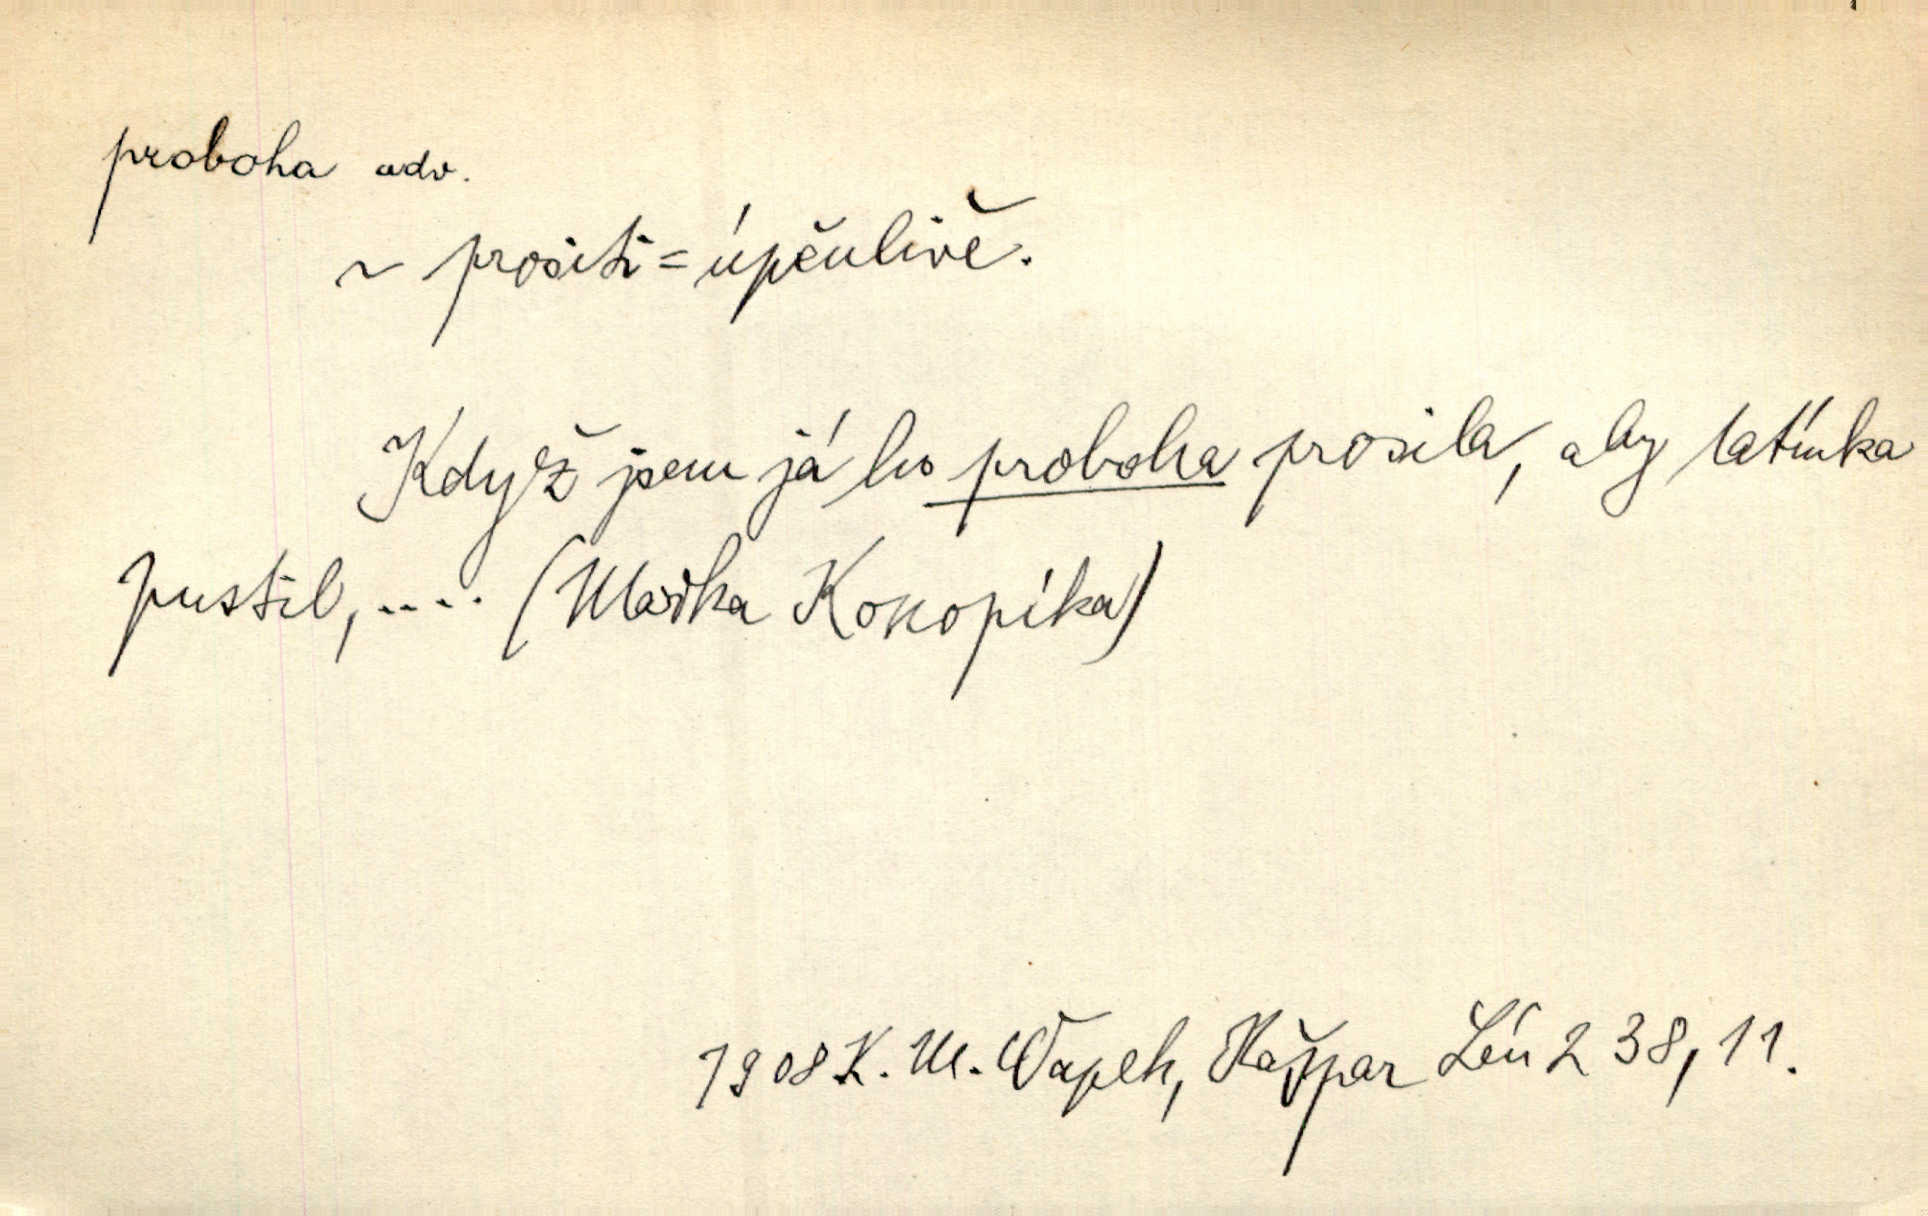 proboha adv.
~ prositi = úpěnlivě.
Když jsem já ho proboha prosila, aby tatínka
pustil, .... (Mařka Konopíka)
1908 K. M. Čapek, Kašpar Lén 2 38, 11.